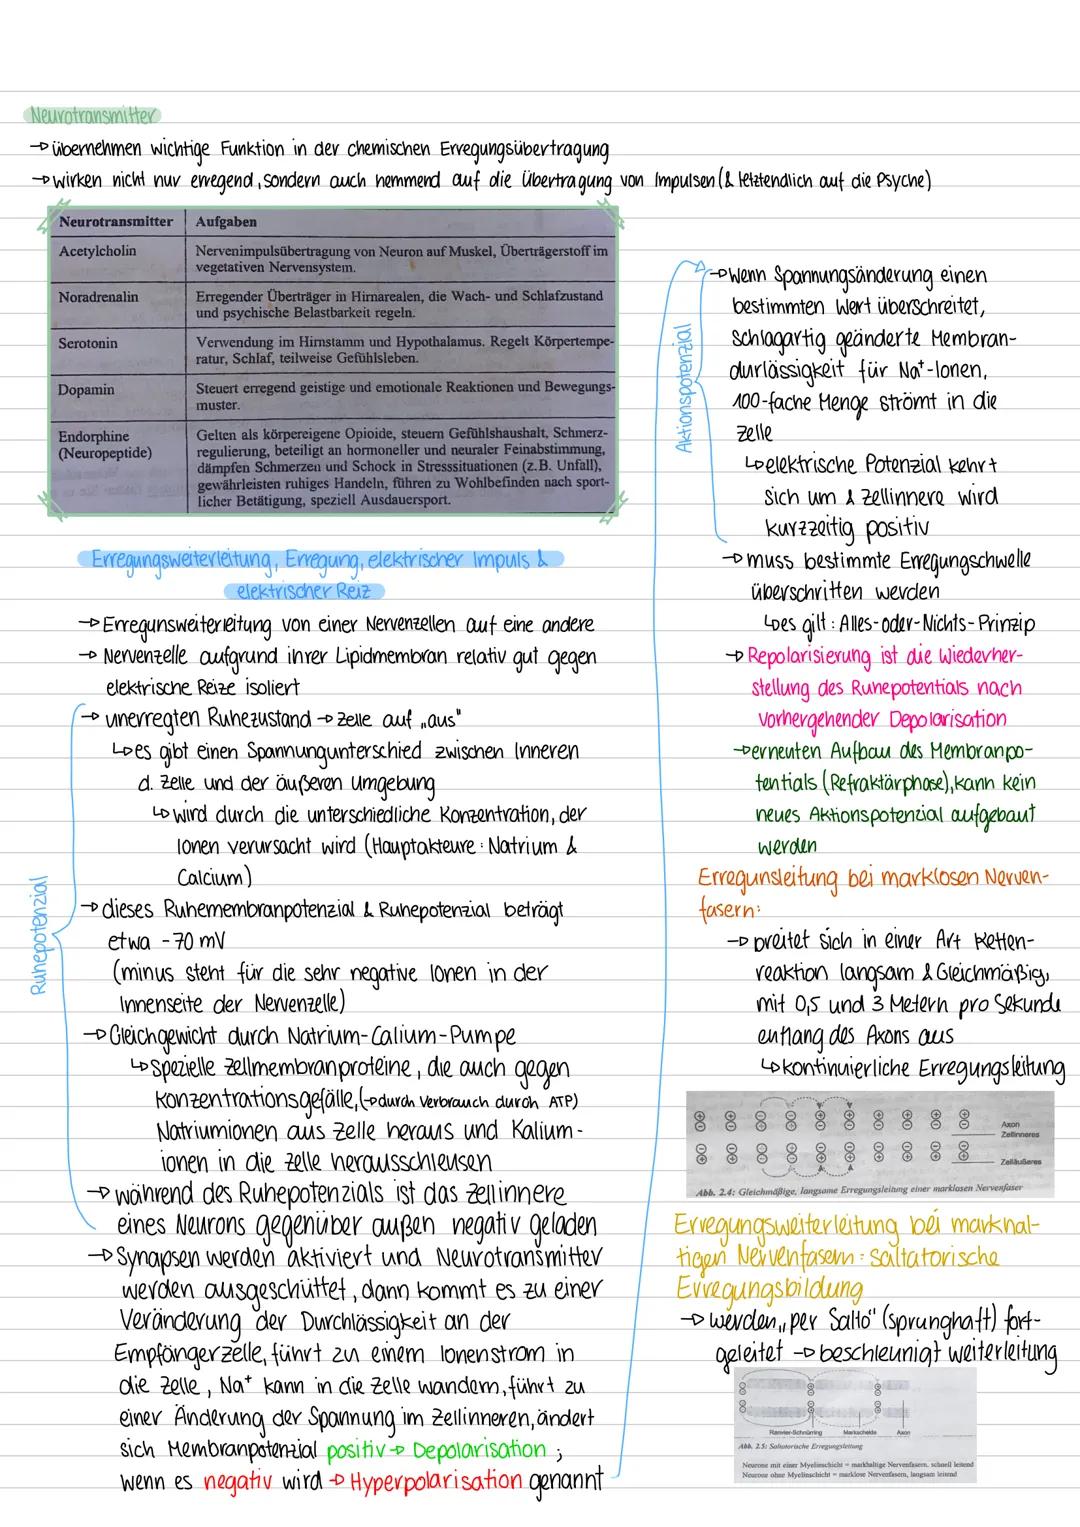 Neurotransmitter
→ übernehmen wichtige Funktion in der chemischen Erregungsübertragung
→ wirken nicht nur erregend, sondern auch hemmend auf die Übertragung von Impulsen (& letztendlich auf die Psyche)
Neurotransmitter Aufgaben
Acetylcholin Nervenimpulsübertragung von Neuron auf Muskel, Überträgerstoff im
vegetativen Nervensystem.
Noradrenalin Erregender Überträger in Hirnarealen, die Wach- und Schlafzustand
und psychische Belastbarkeit regeln.
Serotonin Verwendung im Hirnstamm und Hypothalamus. Regelt Körpertempe-
ratur, Schlaf, teilweise Gefühlsleben.
Dopamin Steuert erregend geistige und emotionale Reaktionen und Bewegungs-
muster.
Endorphine Gelten als körpereigene Opioide, steuern Gefühlshaushalt, Schmerz-
(Neuropeptide) regulierung, beteiligt an hormoneller und neuraler Feinabstimmung,
dämpfen Schmerzen und Schock in Stresssituationen (z.B. Unfall),
gewährleisten ruhiges Handeln, führen zu Wohlbefinden nach sport-
licher Betätigung, speziell Ausdauersport.
Erregungsweiterleitung, Erregung, elektrischer Impuls &
elektrischer Reiz
→ Erregunsweiterleitung von einer Nervenzellen auf eine andere
→ Nervenzelle aufgrund ihrer Lipidmembran relativ gut gegen
elektrische Reize isoliert
Ruhepotenzial
→ unerregten Ruhezustand → Zelle auf „aus"
↳ es gibt einen Spannungunterschied zwischen Inneren
d. Zelle und der äußeren Umgebung
↳ wird durch die unterschiedliche Konzentration, der
Ionen verursacht wird (Hauptakteure: Natrium &
Calcium)
→ dieses Ruhemembranpotenzial & Ruhepotenzial beträgt
etwa -70 mV
(minus steht für die sehr negative Ionen in der
Innenseite der Nervenzelle)
→ Gleichgewicht durch Natrium-Calium-Pumpe
↳ Spezielle Zellmembranproteine, die auch gegen
Konzentrationsgefälle, (→ durch Verbrauch durch ATP)
Natriumionen aus Zelle heraus und Kalium-
ionen in die Zelle herausschleusen
→ während des Ruhepotenzials ist das Zellinnere
eines Neurons gegenüber außen negativ geladen
→ Synapsen werden aktiviert und Neurotransmitter
werden ausgeschüttet, dann kommt es zu einer
Veränderung der Durchlässigkeit an der
Empfängerzelle, führt zu einem Ionenstrom in
die Zelle, Na⁺ kann in die Zelle wandern, führt zu
einer Änderung der Spannung im Zellinneren, ändert
sich Membranpotenzial positiv → Depolarisation ;
wenn es negativ wird → Hyperpolarisation genannt
Aktionspotenzial
→ Wenn Spannungsänderung einen
bestimmten Wert überschreitet,
Schlagartig geänderte Membran-
durlässigkeit für Na⁺-Ionen,
100-fache Menge strömt in die
Zelle
↳ elektrische Potenzial kehrt
sich um & Zellinnere wird
kurzzeitig positiv
→ muss bestimmte Erregungschwelle
überschritten werden
↳ es gilt: Alles-oder-Nichts-Prinzip
→ Repolarisierung ist die Wiederher-
stellung des Ruhepotentials nach
vorhergehender Depolarisation
→ erneuten Aufbau des Membranpo-
tentials (Refraktärphase), kann kein
neues Aktionspotenzial aufgebaut
werden
Erregunsleitung bei marklosen Nerven-
fasern:
→ breitet sich in einer Art Ketten-
reaktion langsam & Gleichmäßig,
mit 0,5 und 3 Metern pro Sekunde
entlang des Axons aus
↳ kontinuierliche Erregungsleitung
Axon
Zellinneres
Zelläußeres
Abb. 2.4: Gleichmäßige, langsame Erregungsleitung einer marklosen Nervenfaser
Erregungsweiterleitung bei markhal-
tigen Nervenfasern: saltatorische
Erregungsbildung
→ werden „per Salto" (sprunghaft) fort-
geleitet → beschleunigt weiterleitung
Ranvier-Schnürring Markscheide Axon
Abb. 2.5: Saltatorische Erregungsleitung
Neurone mit einer Myelinschicht = markhaltige Nervenfasern, schnell leitend
Neurone ohne Myelinschicht = marklose Nervenfasern, langsam leitend